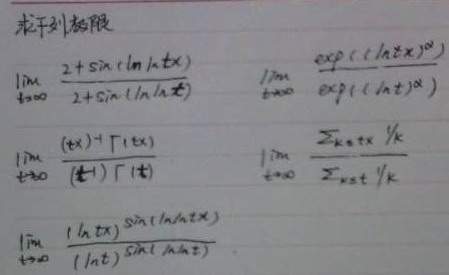 求下列极限
lim t→∞ 2+sin(ln ln tx) / 2+sin(ln ln t)
lim t→∞ exp((ln tx)^α) / exp((ln t)^α)
lim t→∞ (tx)^-1 Γ(tx) / (t^-1) Γ(t)
lim t→∞ Σ_{k≤tx} 1/k / Σ_{k≤t} 1/k
lim t→∞ (ln tx)^sin(ln ln tx) / (ln t)^sin(ln ln t)